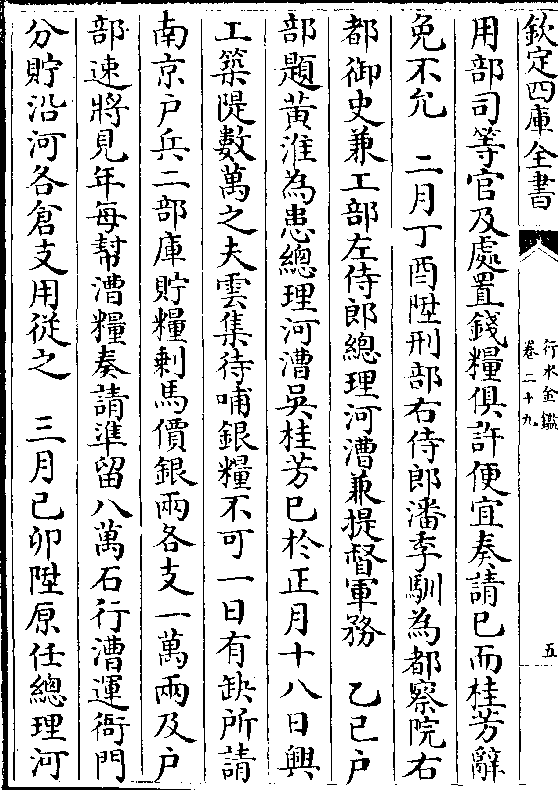 欽定四庫全書
行水金鑑
卷二十九
五
用部司等官及處置錢糧俱許便宜奏請已而桂芳辭
免不允　二月丁酉陞刑部右侍郎潘季馴為都察院右
都御史兼工部左侍郎總理河漕兼提督軍務　乙巳户
部題黄淮為患總理河漕吳桂芳已於正月十八日興
工築隄數萬之夫雲集待哺銀糧不可一日有缺所請
南京户兵二部庫貯糧剩馬價銀兩各支一萬兩及户
部速將見年每幫漕糧奏請準留八萬石行漕運衙門
分貯沿河各倉支用從之　三月己卯陞原任總理河